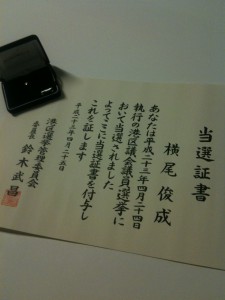 当選証書
横尾俊成
あなたは平成二十三年四月二十四日
執行の港区議会議員選挙に
おいて当選されました
よってここに当選証書を付与し
これを証します
平成二十三年四月二十五日
港区選挙管理委員会
委員長 鈴木武昌